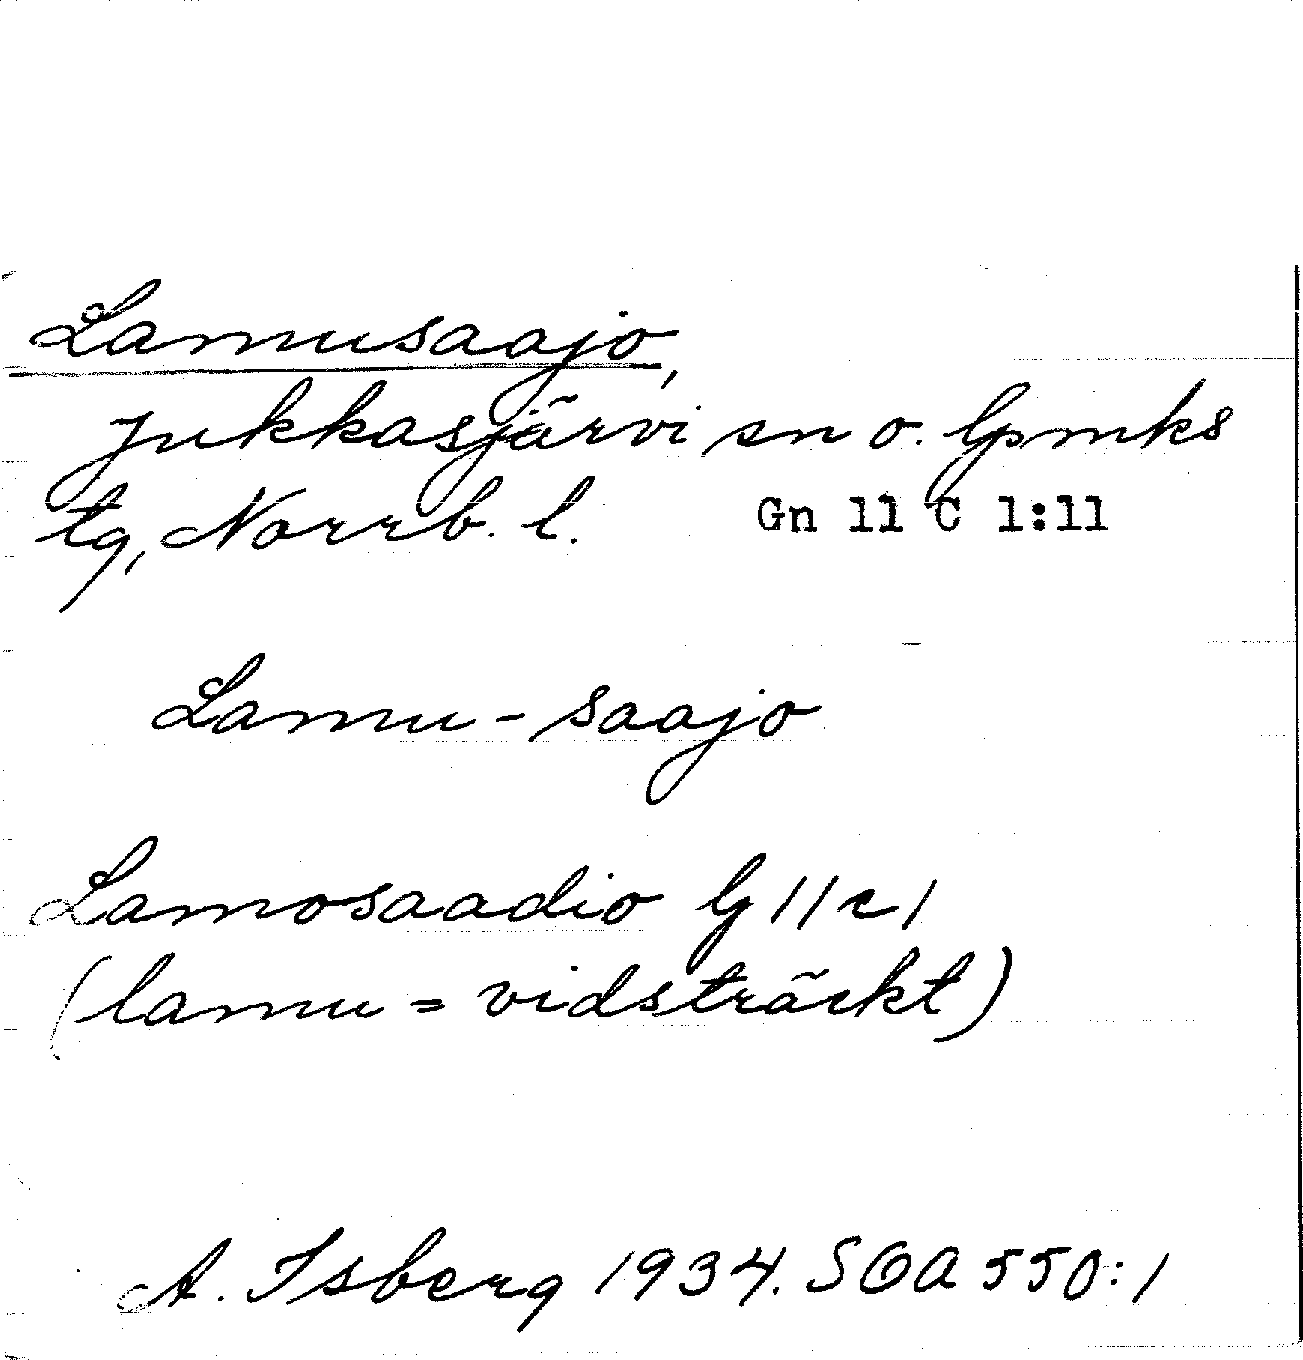 Lamusaajo,
Jukkasjärvi sn o. lpmks
tg, Norrb. l. Gn 11 C 1:11
Lamu-saajo
Lamosaadio G 11 c 1
(lamu = vidsträckt)
A. Isberg 1934. SOA 550:1